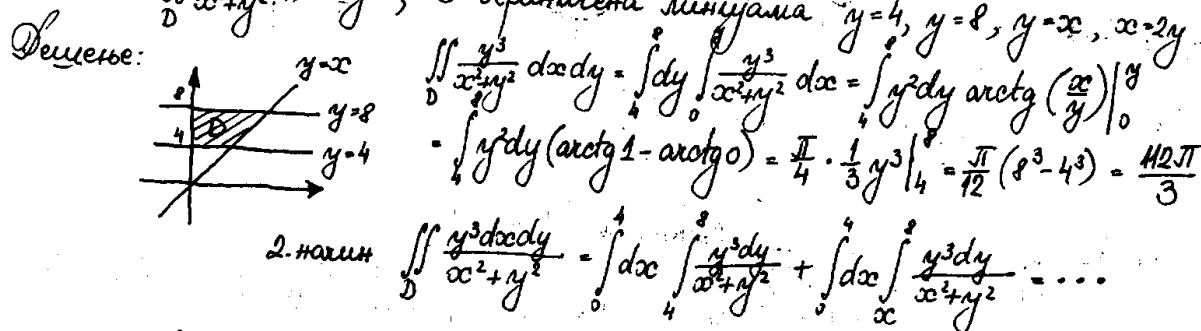 D x+y², D ограничена линијама y=4, y=8, y=x, x=2y
Решење:
y=x
8
y=8
D
4
y=4
∬_D y³/(x²+y²) dxdy = ∫_4^8 dy ∫_0^y y³/(x²+y²) dx = ∫_4^8 y²dy arctg (x/y)|_0^y
= ∫_4^8 y²dy (arctg1 - arctg0) = π/4 · 1/3 y³|_4^8 = π/12 (8³-4³) = 112π/3
2. начин ∬_D y³dxdy/(x²+y²) = ∫_0^4 dx ∫_4^8 y³dy/(x²+y²) + ∫_0^4 dx ∫_x^8 y³dy/(x²+y²) = ....